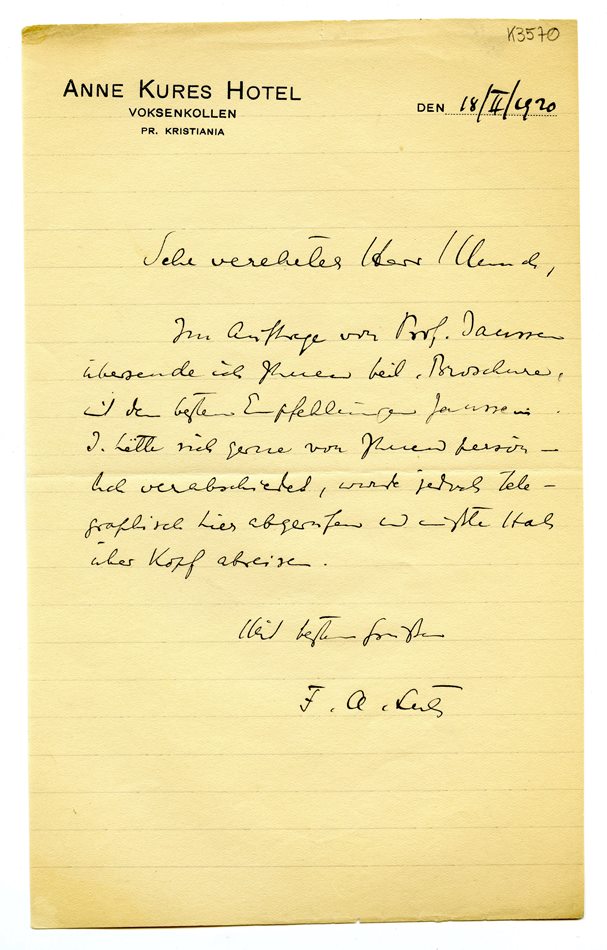 K3570
ANNE KURES HOTEL
VOKSENKOLLEN
PR. KRISTIANIA
DEN 18/II/1920
Sehr verehrter Herr Munch,
Im Auftrage von Prof. Janssen
übersende ich Ihnen beil. Broschure,
mit den besten Empfehlungen Janssens.
J. hätte sich gerne von Ihnen persön-
lich verabschiedet, wurde jedoch tele-
graphisch hier abgerufen u mußte Hals
über Kopf abreisen.
Mit besten Grüßen
F. A.